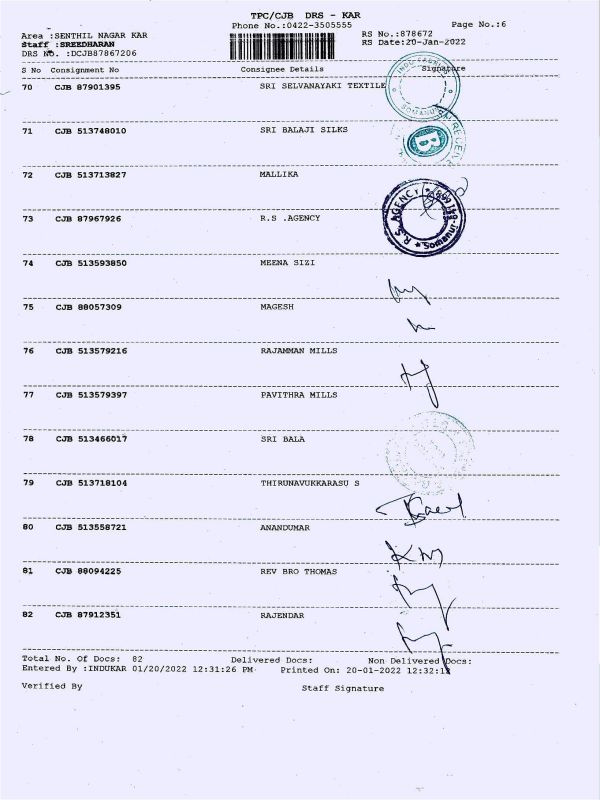 TPC/CJB DRS - KAR
Phone No.:0422-3505555
Page No.:6
Area :SENTHIL NAGAR KAR
RS No.:878672
Staff :SREEDHARAN
RS Date:20-Jan-2022
DRS No. :DCJB87867206
S No Consignment No Consignee Details Signature
70 CJB 87901395 SRI SELVANAYAKI TEXTILE
71 CJB 513748010 SRI BALAJI SILKS
72 CJB 513713827 MALLIKA
73 CJB 87967926 R.S .AGENCY
R.S. AGENCY
74 CJB 513593850 MEENA SIZI
75 CJB 88057309 MAGESH
76 CJB 513579216 RAJAMMAN MILLS
77 CJB 513579397 PAVITHRA MILLS
78 CJB 513466017 SRI BALA
79 CJB 513718104 THIRUNAVUKKARASU S
80 CJB 513558721 ANANDUMAR
81 CJB 88094225 REV BRO THOMAS
82 CJB 87912351 RAJENDAR
Total No. Of Docs: 82 Delivered Docs: Non Delivered Docs:
Entered By :INDUKAR 01/20/2022 12:31:26 PM Printed On: 20-01-2022 12:32:12
Verified By Staff Signature